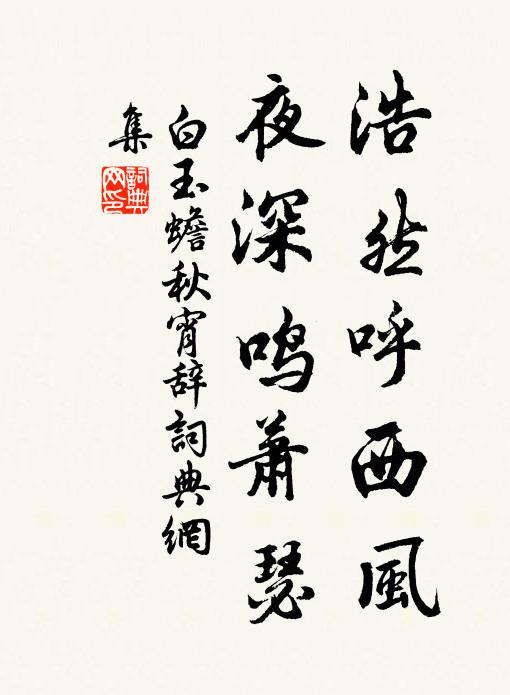 浩然呼西風
夜深鳴蕭瑟
白玉蟾秋宵辭詞典網
集
詞典
網印